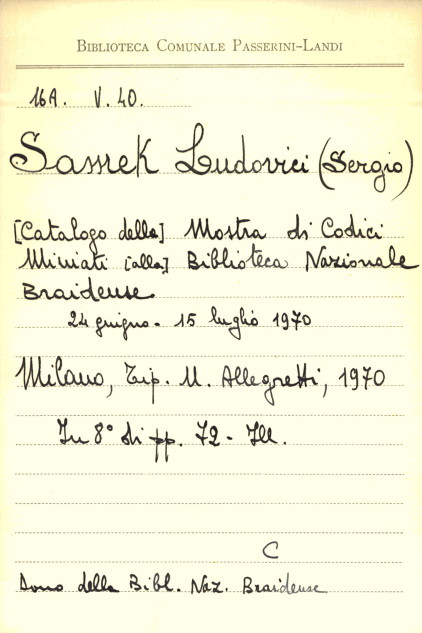 BIBLIOTECA COMUNALE PASSERINI-LANDI
16A. V. 40.
Samek Ludovici (Sergio)
[Catalogo della] Mostra di Codici
Miniati [alla] Biblioteca Nazionale
Braidense
24 giugno - 15 luglio 1970
Milano, Tip. U. Allegretti, 1970
In 8° di pp. 72 - Ill.
C
Dono della Bibl. Naz. Braidense